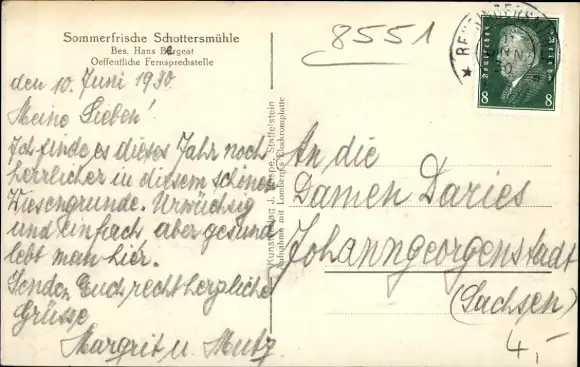 Sommerfrische Schottersmühle
Bes. Hans Bergeat
Oeffentliche Fernsprechstelle
8551
den 10. Juni 1930
Meine Lieben!
Ich finde es dieses Jahr noch
herrlicher in diesem schönen
Wiesengrunde. Urwüchsig
und einfach aber gesund
lebt man hier.
Senden Euch recht herzliche
Grüsse
Margrit u. Mutz
Kunstverlag J. Staffelstein
Aufnahme mit Platte
Deutsches Reich
8 8
An die
Damen Daries
Johanngeorgenstadt
(Sachsen)
4,-